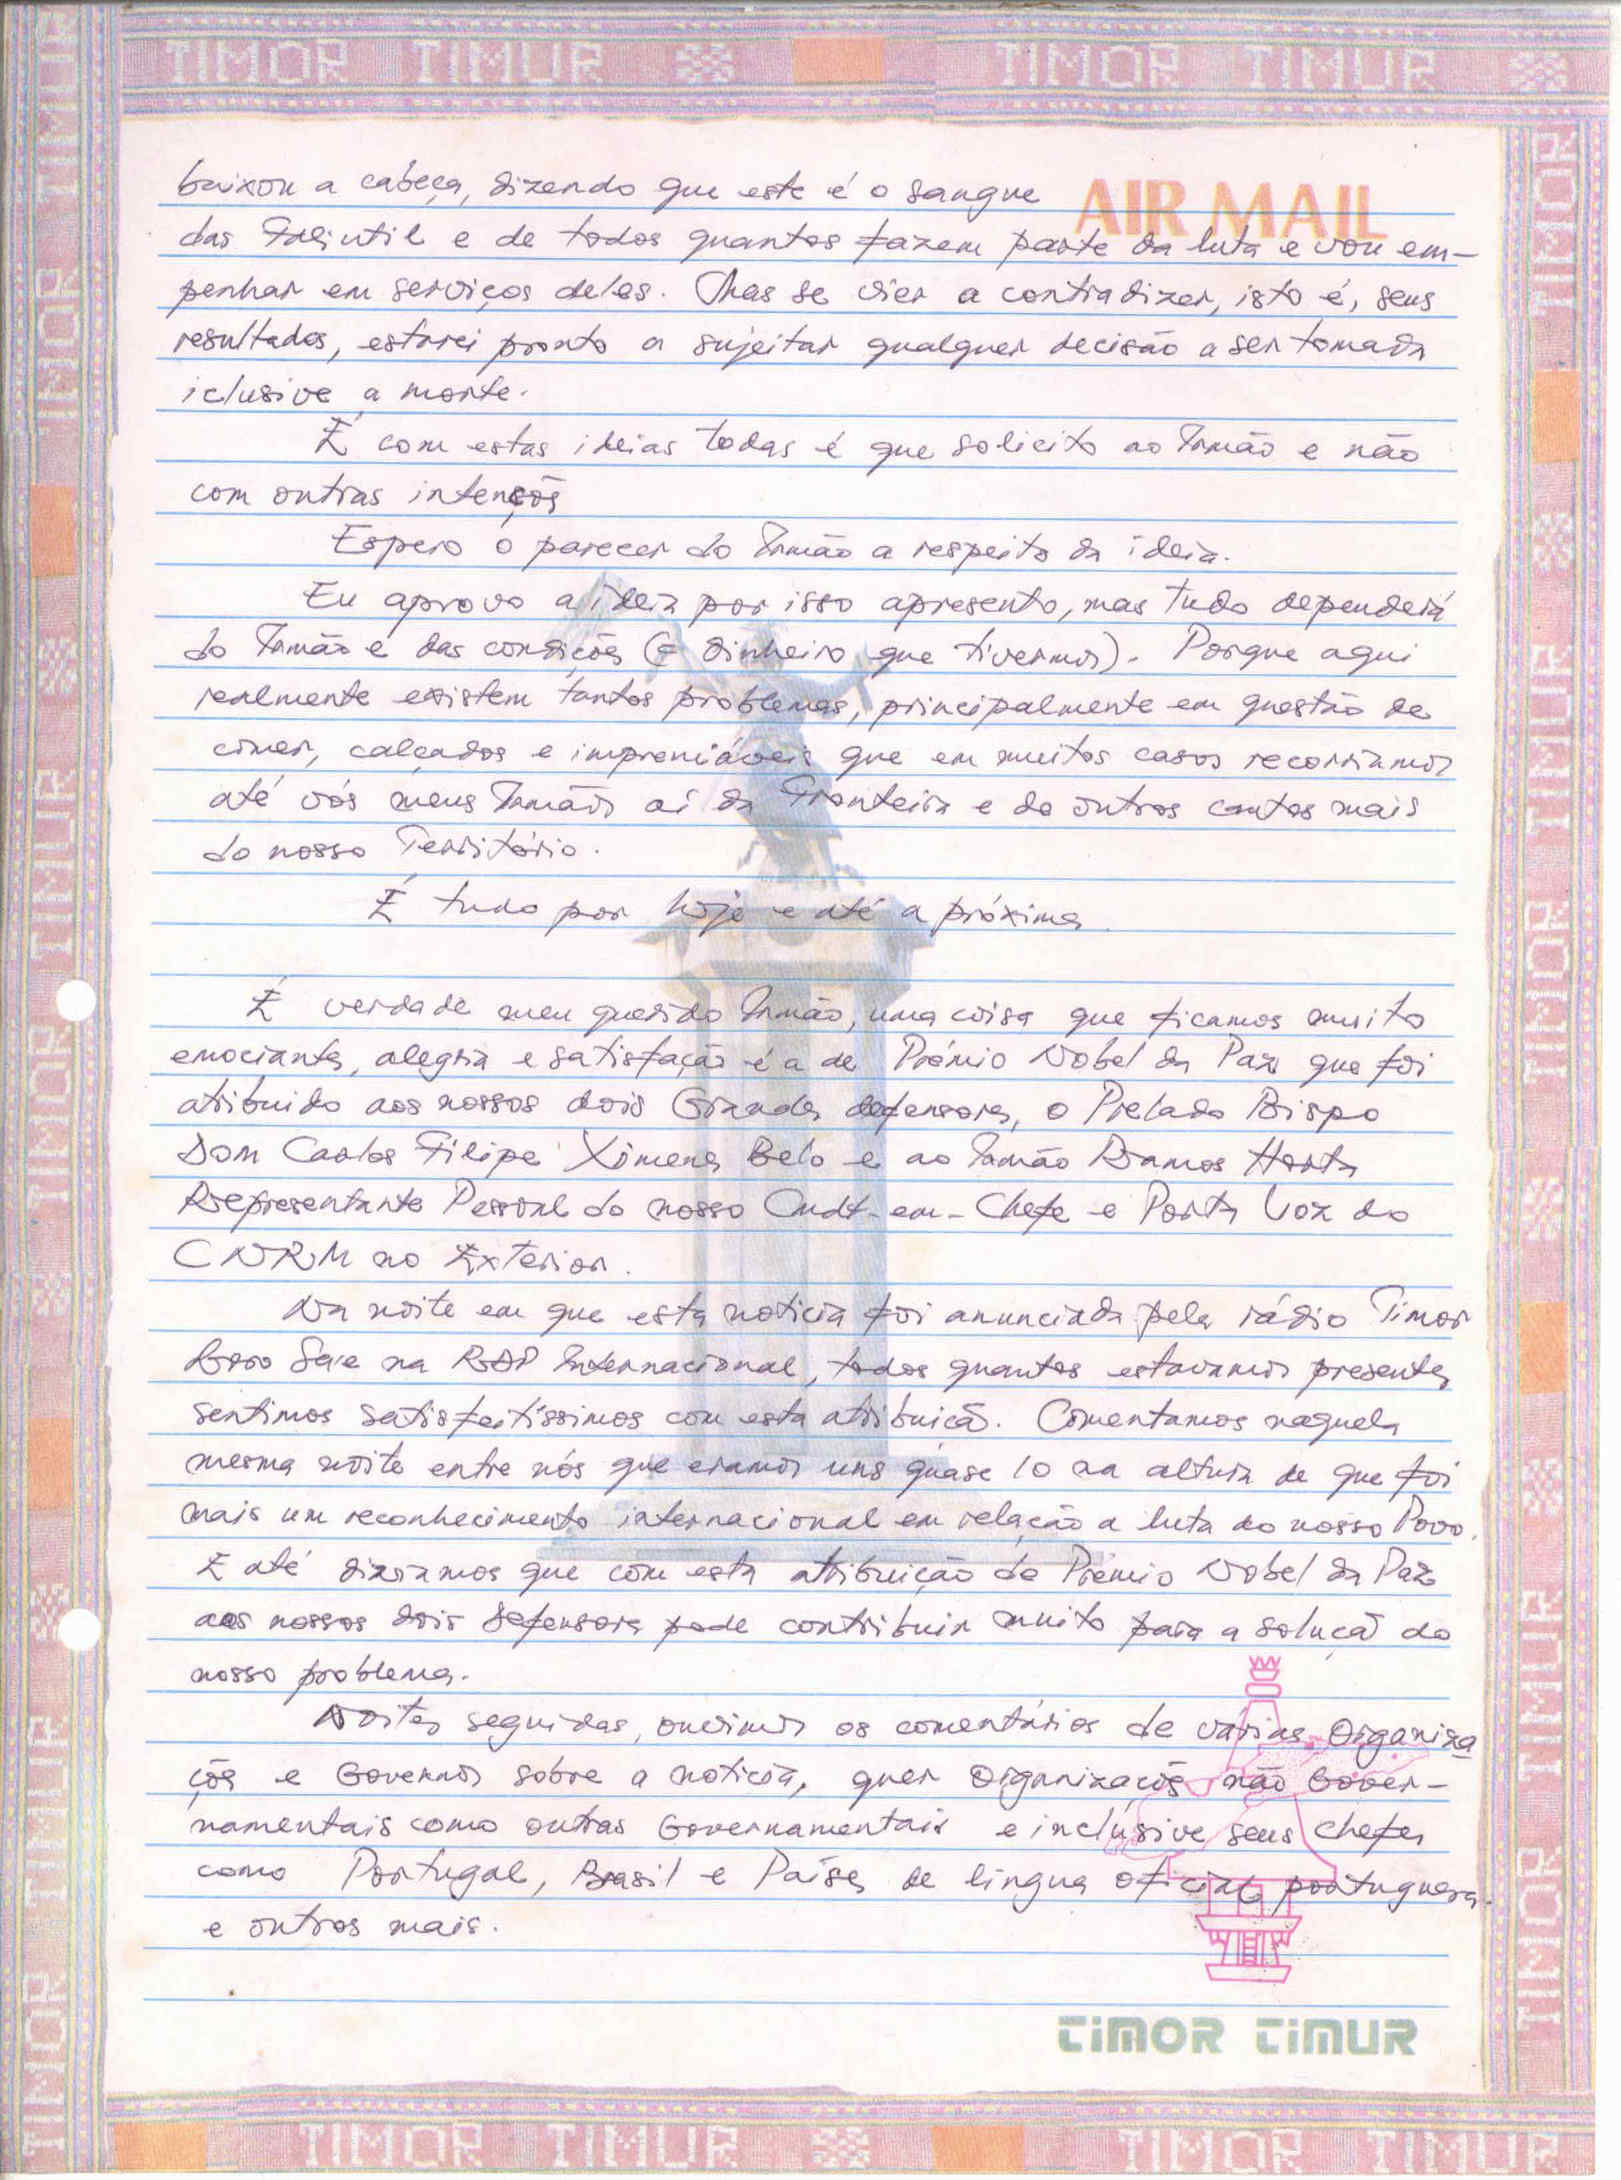 TIMOR TIMUR TIMOR TIMUR
AIR MAIL
baixou a cabeça, dizendo que este é o sangue
das Falintil e de todos quantos fazem parte da luta e vou em-
penhar em serviços deles. Mas se vier a contradizer, isto é, seus
resultados, estarei pronto a sujeitar qualquer decisão a ser tomada
iclusive a morte.
É com estas ideias todas é que solicito ao Irmão e não
com outras intenções
Espero o parecer do Irmão a respeito da ideia.
Eu aprovo a ideia por isso apresento, mas tudo dependerá
do Irmão e das condições (e dinheiro que tivermos). Porque aqui
realmente existem tantos problemas, principalmente em questão de
comer, calçados e impremiáveis que em muitos casos recorríamos
até vós meus Irmãos aí da Fronteira e de outros cantos mais
do nosso Território.
É tudo por hoje e até a próxima
É verdade meu querido Irmão, uma coisa que ficamos muito
emociante, alegria e satisfação é a de Prémio Nobel da Paz que foi
atribuido aos nossos dois Grandes defensores, o Prelado Bispo
Dom Carlos Filipe Ximenes Belo e ao Irmão Ramos Horta
Representante Pessoal do nosso Cmdt-em-Chefe e Porta Voz do
CNRM no Exterior.
Na noite em que esta noticia foi anunciada pela rádio Timor
Loro Sa'e na RDP Internacional, todos quantos estavamos presentes
sentimos satisfeitíssimos com esta atribuicã. Comentamos naquela
mesma noite entre nós que eramos uns quáse 10 na altura de que foi
mais um reconhecimento internacional em relação a luta do nosso Povo.
E até diziamos que com esta atribuição de Prémio Nobel da Paz
aos nossos dois defensores pode contribuir muito para a soluçã do
nosso problema.
Noites seguidas, ouvimos os comentários de varias Organiza
ções e Governos sobre a noticia, quer Organizações não Gover-
namentais como outras Governamentais e inclusive seus chefes
como Portugal, Brasil e Países de lingua oficial portuguesa.
e outros mais.
TIMOR TIMUR
TIMOR TIMUR TIMOR TIMUR